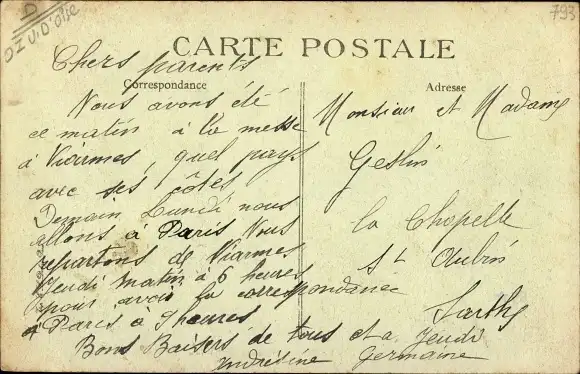 D
S I V. D'Oise
793
CARTE POSTALE
Correspondance
Adresse
Chers parents
Nous avons été
ce matin à la messe
à Viarmes, quel pays
avec ses côtes
Demain Lundi nous
allons à Paris Nous
repartons de Viarmes
Jeudi matin à 6 heures
pour avoir la correspondance
à Paris à 9 heures
Bons Baisers de tous et a Jeudi
Germaine
Monsieur et Madame
Geslin
la Chapelle
St Aubin
Sarthe